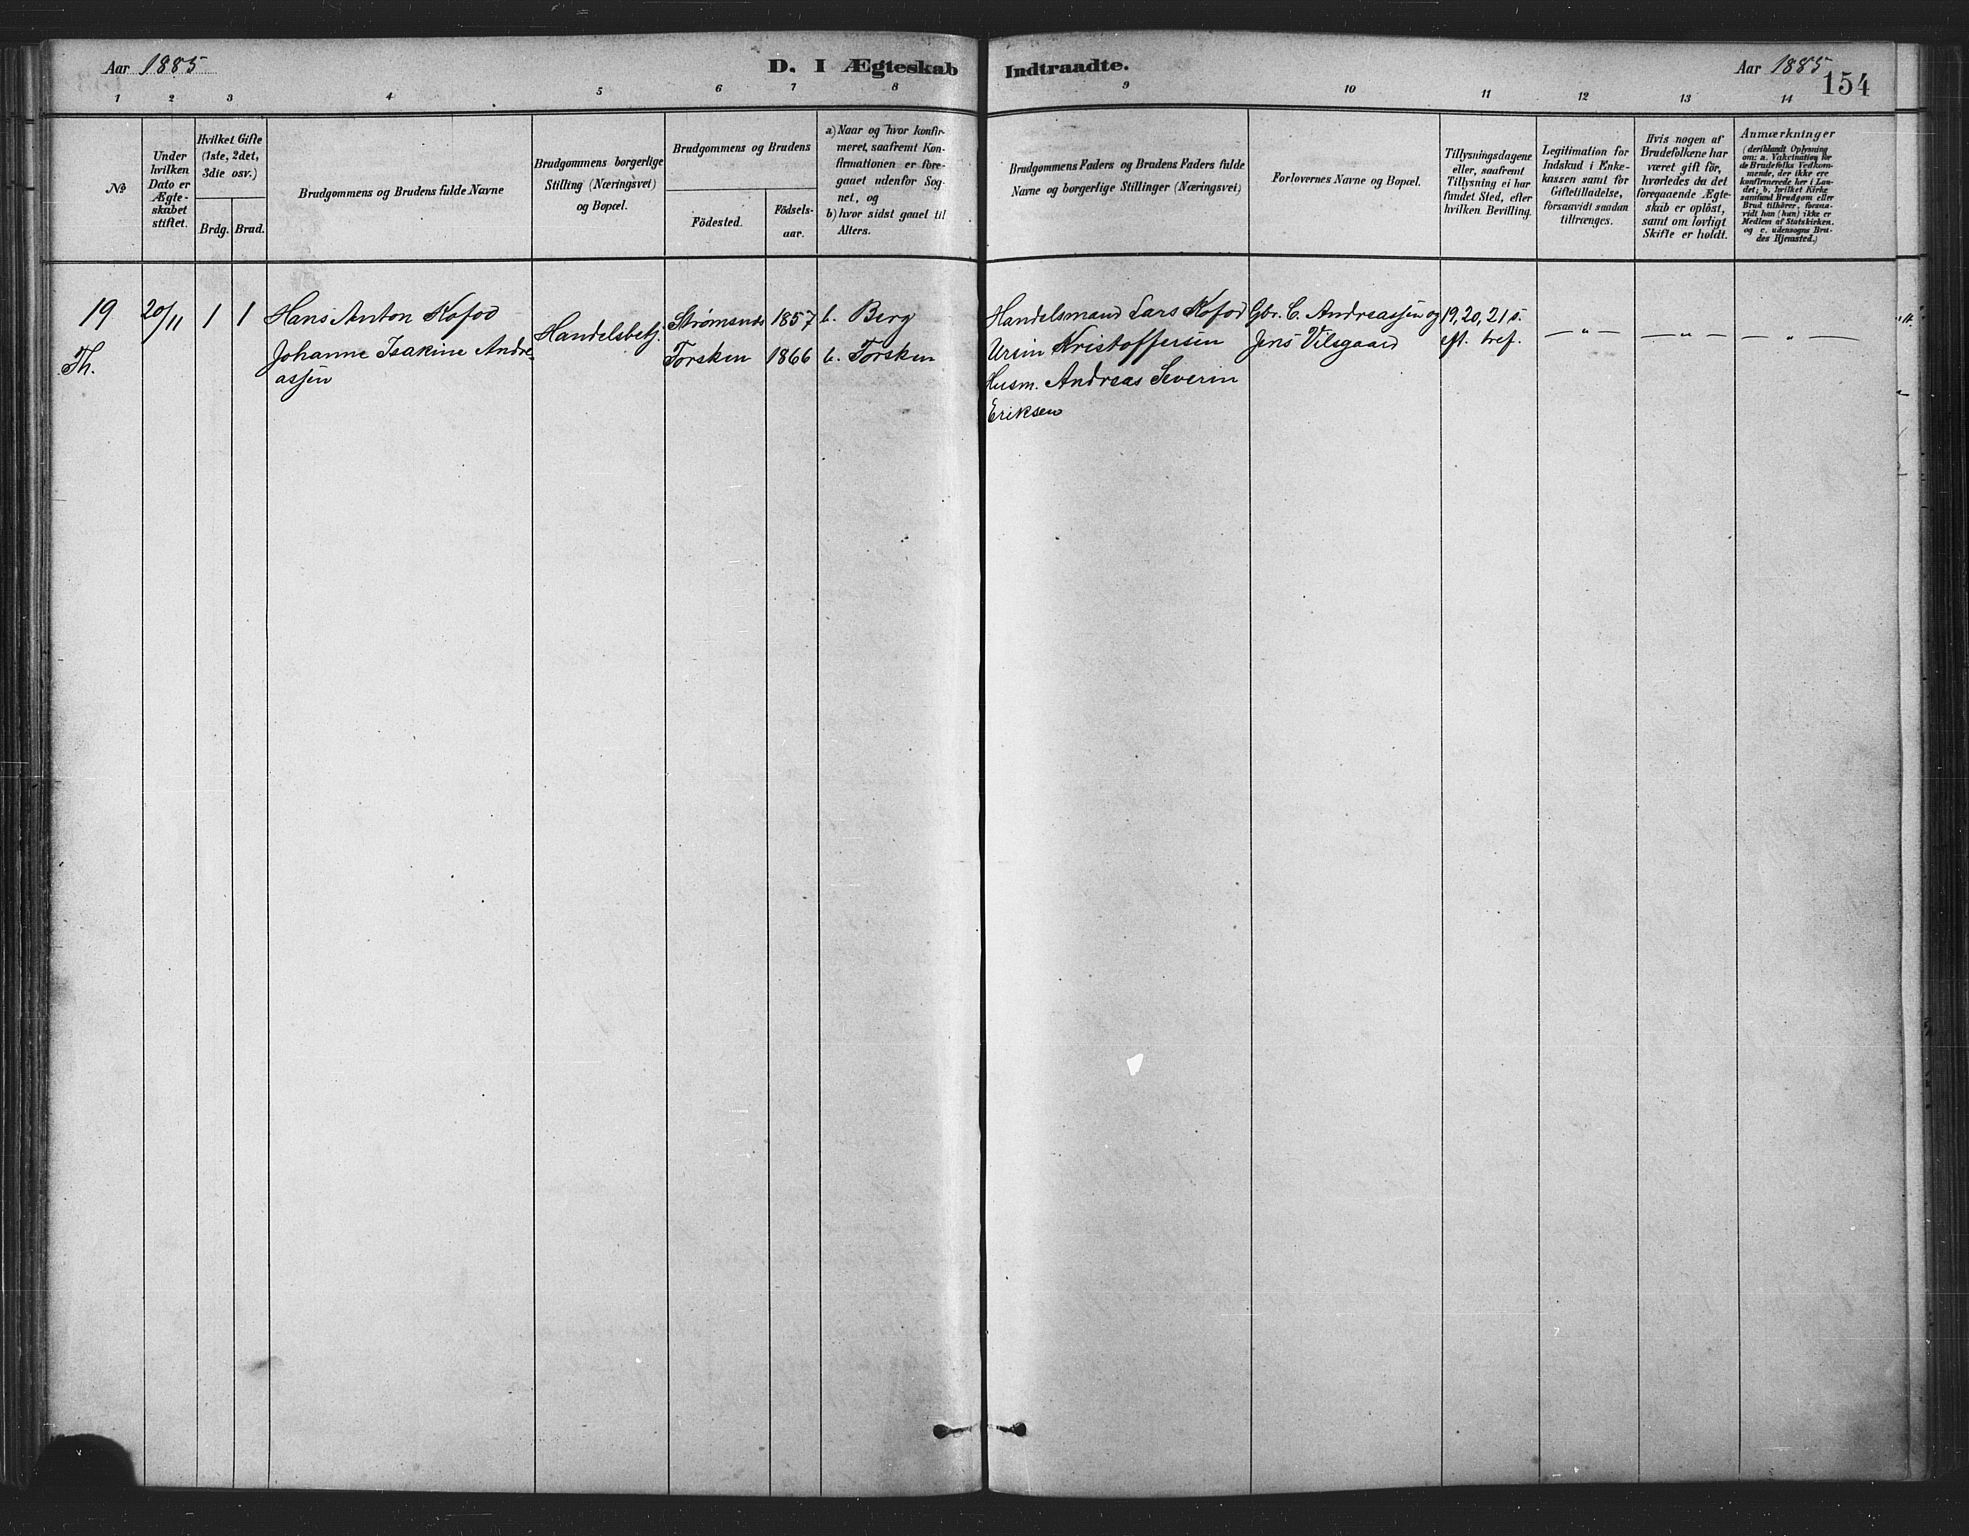 Aar 1885
D. I Ægteskab Indtraadte.
Aar 1885
154
1 2 3 4 5 6 7 8 9 10 11 12 13 14
No
Under
hvilken
Dato er
Ægte-
skabet
stiftet.
Hvilket Gifte
(1ste, 2det,
3die osv.)
Brdg. Brud.
Brudgommens og Brudens fulde Navne
Brudgommens borgerlige
Stilling (Næringsvei)
og Bopæl.
Brudgommens og Brudens
Födested.
Födsels-
aar.
a) Naar og hvor konfir-
meret, saafremt Kon-
firmationen er fore-
gaaet udenfor Sog-
net, og
b) hvor sidst gaaet til
Alters.
Brudgommens Faders og Brudens Faders fulde
Navne og borgerlige Stillinger (Næringsvei)
Forlovernes Navne og Bopæl.
Tillysningsdagene
eller, saafremt
Tillysning ei har
fundet Sted, efter
hvilken Bevilling.
Legitimation for
Indskud i Enke-
kassen samt for
Giftetilladelse,
forsaavidt saadan
tiltrænges.
Hvis nogen af
Brudefolkene har
været gift för,
hvorledes da det
foregaaende Ægte-
skab er oplöst,
samt om lovligt
Skifte er holdt.
Anmærkninger
(deriblandt Oplysning
om: a. Vakcination for
de Brudefolks Vedkom-
mende, der ikke ere
konfirmerede her i Lan-
det; b. hvilket Kirke
samfund Brudgom eller
Brud tilhörer, forsaa-
vidt han (hun) ikke er
Medlem af Statskirken.
og c. udensogns Bru-
des Hjemsted.)
19 20/11 1 1 Hans Anton Kofod
Th. Johanne Isakine Andre-
assen
Handelsbetj.
Strømsnes 1857 b. Berg
Torsken 1866 b. Torsken
Handelsmand Lars Kofod
Ursin Kristoffersen
Husm. Andreas Severin
Eriksen
Gbr. C. Andreassen og
Jens Vilsgaard
19, 20, 21 s.
eft. tref.
— " — — " — — " —